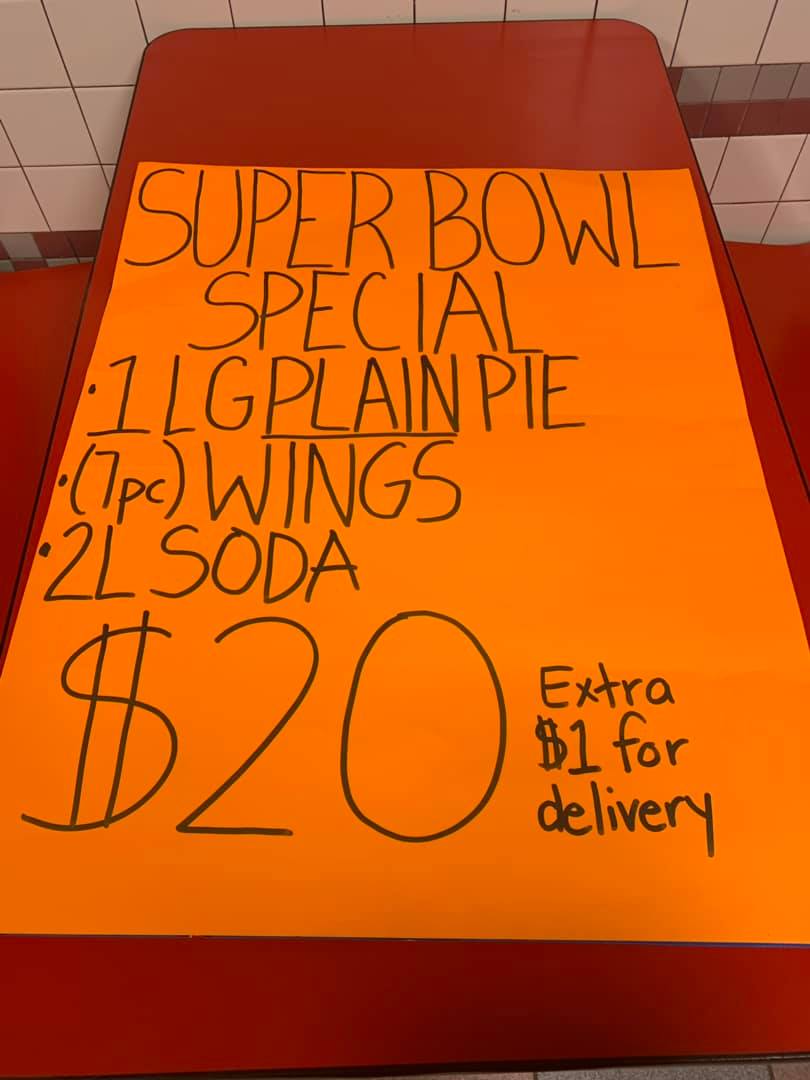 SUPER BOWL
SPECIAL
• 1 LG PLAIN PIE
• (7pc) WINGS
• 2L SODA
$20
Extra
$1 for
delivery